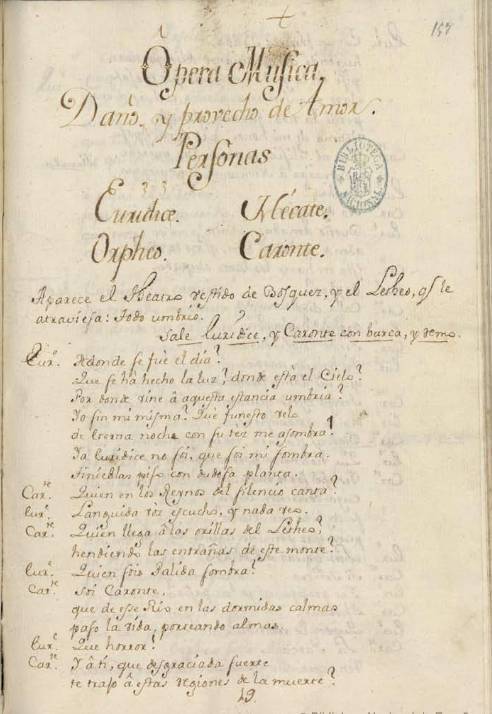 157
Ópera Música,
Daño, y provecho de Amor.
Personas
Eurídice. Hécate.
Orpheo. Caronte.
BIBLIOTECA NACIONAL
Aparece el Theatro vestido de Bosques, y el Letheo, q̃ le
atraviesa: todo umbrío.
Sale Eurídice, y Caronte con barca, y remo.
Eur.ᵉ Adonde se fue el día?
Que se há hecho la luz? donde está el Cielo?
Por donde vine à aquesta estancia umbría?
Yo sin mi misma? Què funesto velo
de eterna noche con su tez me asombra?
Ya Eurídice no soi, que soi mi sombra.
Tinieblas piso con dudosa planta.
Car.ᵗᵉ Quien en los Reynos del silencio canta?
Eur.ᵉ Languida voz escucho, y nada veo.
Car.ᵗᵉ Quien llega à las orillas del Letheo,
hendiendo las entrañas de este monte?
Eur.ᵉ Quien sois Palida sombra?
Car.ᵗᵉ Soi Caronte,
que de esse Rio en las dormidas calmas
paso la vida, porteando almas.
Eur.ᵉ Que horror!
Car.ᵗᵉ Y à ti, que desgraciada suerte
te trajo à estas regiones de la muerte?